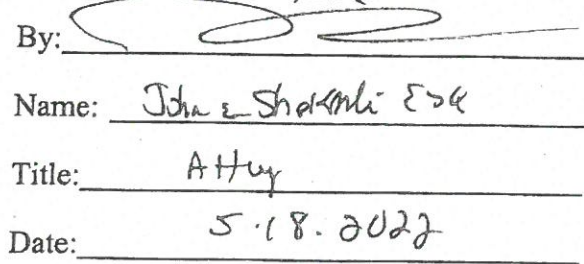 By:
Name: John E Shakmli Esq
Title: Atty
Date: 5.18.2022